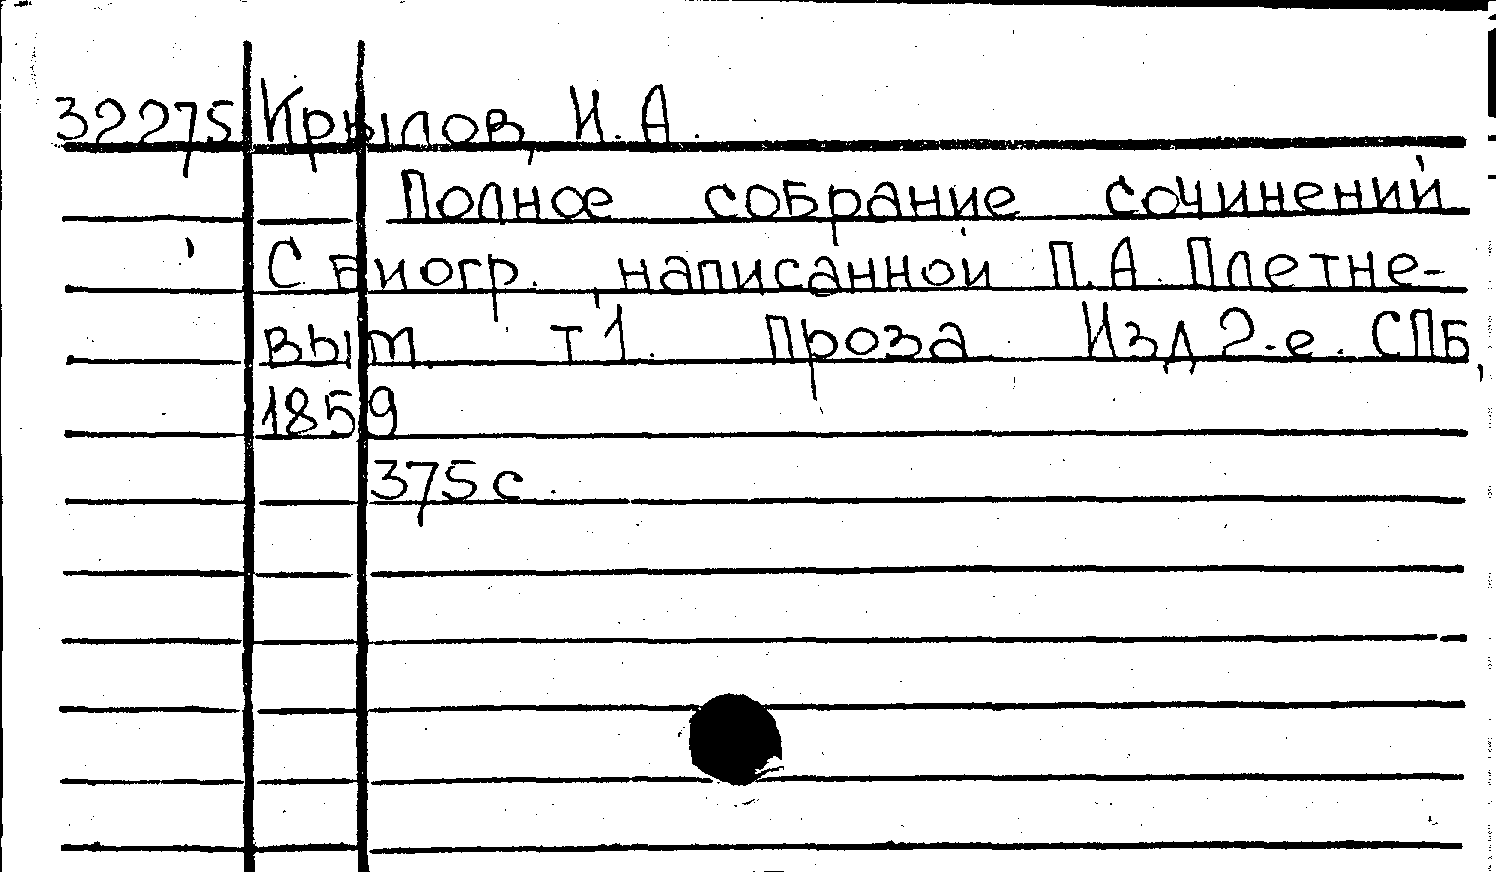 32275 Крылов, И. А.
Полное собрание сочинений
С биогр., написанной П. А. Плетне-
вым. т 1. Проза Изд 2-е. СПБ,
1859
375 с.